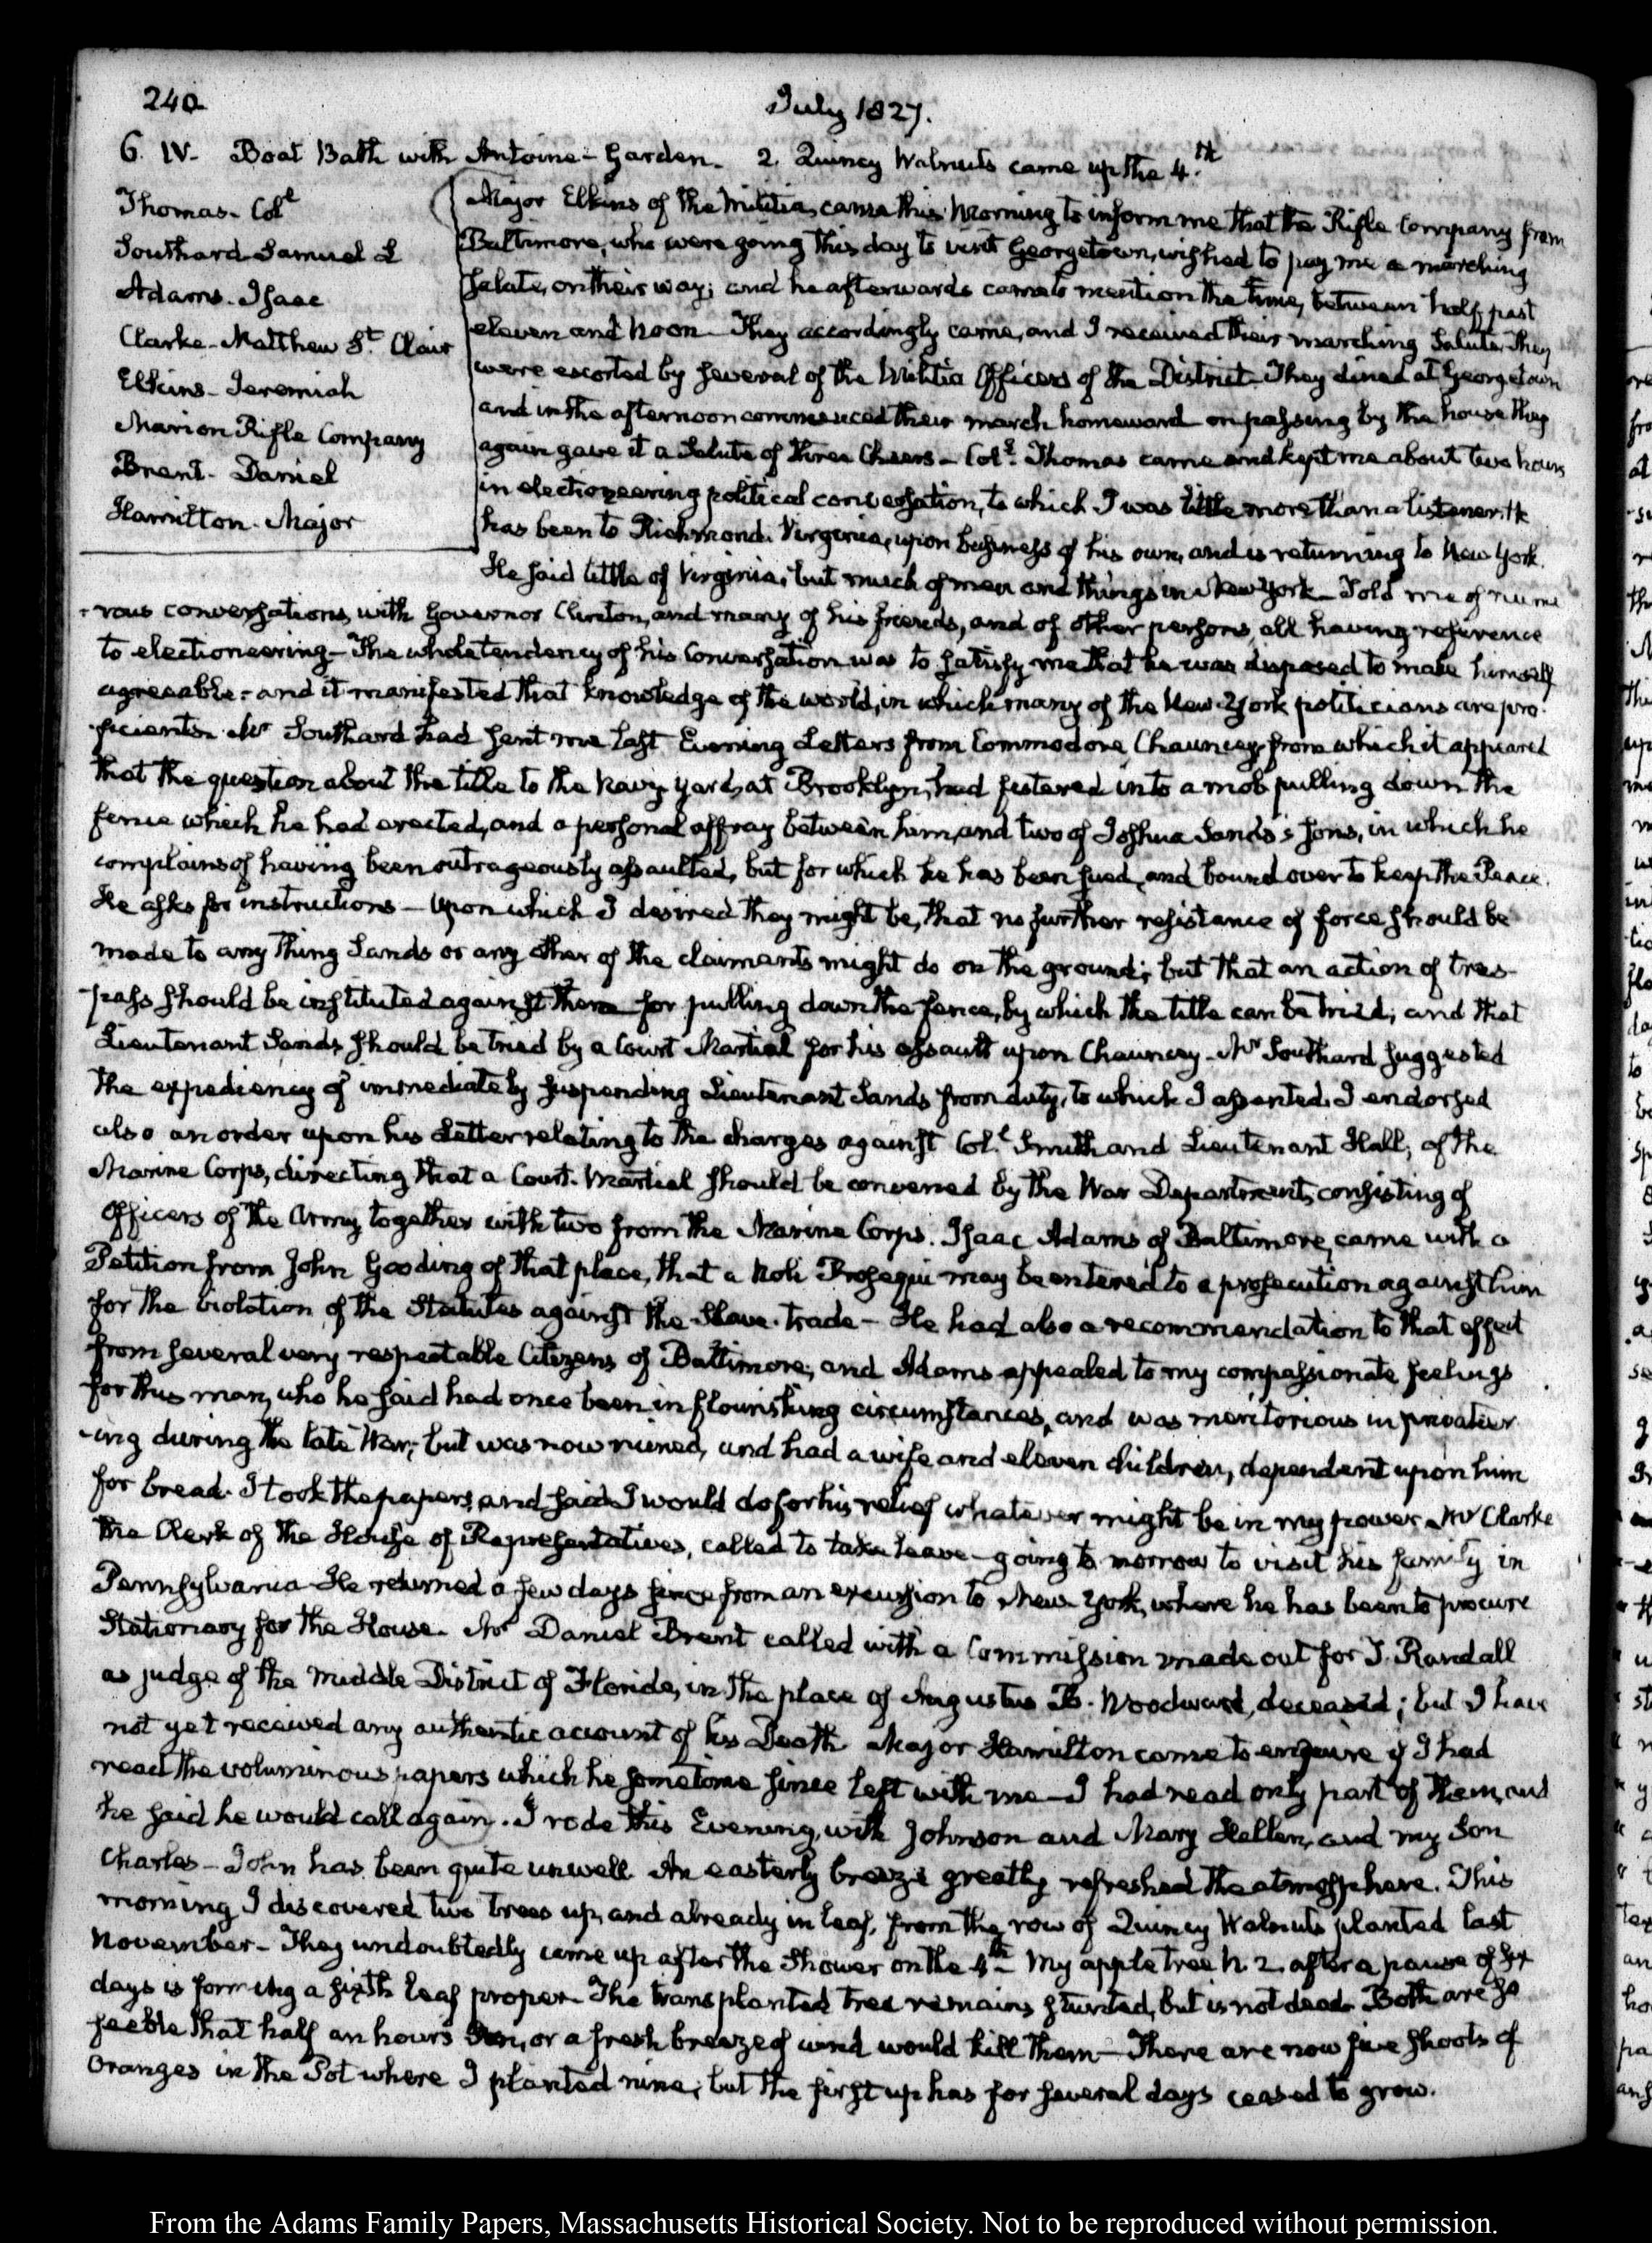 240
July 1827.
6. IV. Boat Bath with Antoine - Garden. 2. Quincy Walnuts came up the 4.th
Thomas - Col.l
Southard Samuel L
Adams - Isaac
Clarke - Matthew St. Clair
Elkins - Jeremiah
Marion Rifle Company
Brent - Daniel
Hamilton - Major
Major Elkins of the Militia, came this Morning to inform me that the Rifle Company from
Baltimore, who were going this day to visit Georgetown, wished to pay me a marching
Salute, on their way; and he afterwards came to mention the time, between half past
eleven and noon - They accordingly came, and I received their marching Salute. They
were escorted by several of the Militia Officers of the District - They dined at Georgetown
and in the afternoon commenced their march homeward - on passing by the house they
again gave it a Salute of three Cheers - Col.l Thomas came and kept me about two hours
in electioneering political conversation, to which I was little more than a listener. He
has been to Richmond Virginia, upon business of his own, and is returning to New York.
He said little of Virginia, but much of men and things in New York - Told me of nume-
-rous conversations with Governor Clinton, and many of his friends, and of other persons, all having reference
to electioneering - The whole tendency of his Conversation was to satisfy me that he was disposed to make himself
agreeable - and it manifested that knowledge of the world, in which many of the New-York politicians are pro-
-ficients. Mr Southard had sent me last Evening Letters from Commodore Chauncey, from which it appeared
that the question about the title to the Navy Yard, at Brooklyn, had festered into a mob pulling down the
fence which he had erected, and a personal affray between him, and two of Joshua Sands's sons, in which he
complains of having been outrageously assaulted, but for which he has been sued, and bound over to keep the Peace.
He asks for instructions - Upon which I desired they might be, that no further resistance of force should be
made to any thing Sands or any other of the claimants might do on the ground; but that an action of tres-
-pass should be instituted against them for pulling down the fence, by which the title can be tried; and that
Lieutenant Sands should be tried by a Court Martial for his assault upon Chauncey - Mr Southard suggested
the expediency of immediately suspending Lieutenant Sands from duty, to which I assented. I endorsed
also an order upon his Letter relating to the charges against Col.l Smith and Lieutenant Hall, of the
Marine Corps, directing that a Court-Martial should be convened by the War Department, consisting of
Officers of the Army together with two from the Marine Corps. Isaac Adams of Baltimore, came with a
Petition from John Gooding of that place, that a Noli Prosequi may be entered to a prosecution against him
for the violation of the Statutes against the Slave-trade - He had also a recommendation to that effect
from several very respectable Citizens of Baltimore; and Adams appealed to my compassionate feelings
for this man, who he said had once been in flourishing circumstances, and was meritorious in privateer
-ing during the late War; but was now ruined, and had a wife and eleven children, dependent upon him
for bread. I took the papers, and said I would do for his relief whatever might be in my power - Mr Clarke
the Clerk of the House of Representatives, called to take leave - going to morrow to visit his family in
Pennsylvania - He returned a few days since from an excursion to New York, where he has been to procure
Stationary for the House. Mr Daniel Brent called with a Commission made out for T. Randall
as judge of the Middle District of Florida, in the place of Augustus B. Woodward, deceased; but I have
not yet received any authentic account of his Death. Major Hamilton came to enquire if I had
read the voluminous papers which he sometime since left with me - I had read only part of them, and
he said he would call again. I rode this Evening, with Johnson and Mary Hellen, and my Son
Charles - John has been quite unwell. An easterly breeze greatly refreshed the atmosphere. This
morning I discovered two trees up, and already in leaf, from the row of Quincy Walnuts planted last
November - They undoubtedly came up after the Shower on the 4th - My apple tree N. 2. after a pause of six
days is forming a sixth leaf proper - The transplanted tree remains stunted, but is not dead. Both are so
feeble that half an hours Sun, or a fresh breeze of wind would kill them - There are now five shoots of
Oranges in the Pot where I planted nine; but the first up has for several days ceased to grow.
From the Adams Family Papers, Massachusetts Historical Society. Not to be reproduced without permission.